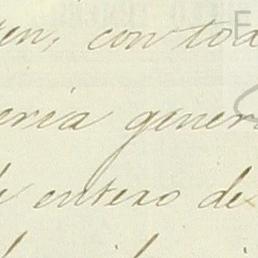 en, con tod
eria gener
de entero de